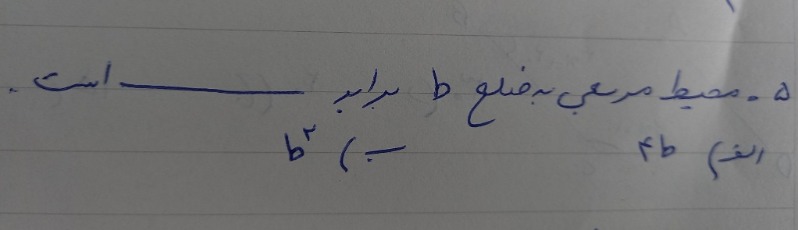 ۵. محیط مربعی به ضلع b برابر ______ است.
الف) ۴b ب) b^۲